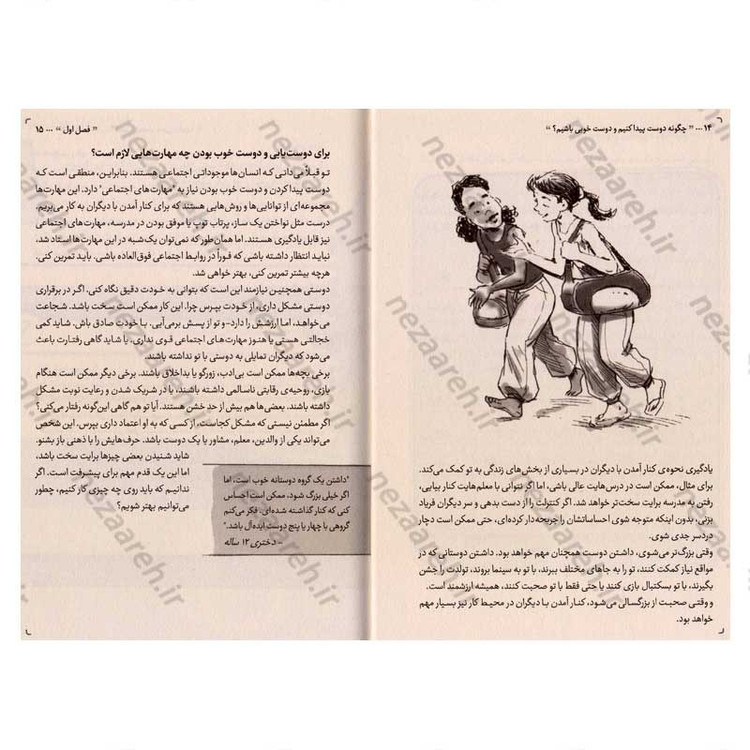 ۱۴ ... « چگونه دوست پیدا کنیم و دوست خوبی باشیم؟ »
یادگیری نحوه‌ی کنار آمدن با دیگران در بسیاری از بخش‌های زندگی به تو کمک می‌کند.
برای مثال، ممکن است در درس‌هایت عالی باشی، اما اگر نتوانی با معلم‌هایت کنار بیایی،
رفتن به مدرسه برایت سخت‌تر خواهد شد. اگر کنترلت را از دست بدهی و سر دیگران فریاد
بزنی، بدون اینکه متوجه شوی احساساتشان را جریحه‌دار کرده‌ای، حتی ممکن است دچار
دردسر جدی شوی.
وقتی بزرگ‌تر می‌شوی، داشتن دوست همچنان مهم خواهد بود. داشتن دوستانی که در
مواقع نیاز کمکت کنند، تو را به جاهای مختلف ببرند، با تو به سینما بروند، تولدت را جشن
بگیرند، با تو بسکتبال بازی کنند یا حتی فقط با تو صحبت کنند، همیشه ارزشمند است.
و وقتی صحبت از بزرگسالی می‌شود، کنار آمدن با دیگران در محیط کار نیز بسیار مهم
خواهد بود.
« فصل اول » ... ۱۵
برای دوست‌یابی و دوست خوب بودن چه مهارت‌هایی لازم است؟
تو قبلاً می‌دانی که انسان‌ها موجوداتی اجتماعی هستند. بنابراین، منطقی است که
دوست پیدا کردن و دوست خوب بودن نیاز به "مهارت‌های اجتماعی" دارد. این مهارت‌ها
مجموعه‌ای از توانایی‌ها و روش‌هایی هستند که برای کنار آمدن با دیگران به کار می‌بریم.
درست مثل نواختن یک ساز، پرتاب توپ یا موفق بودن در مدرسه، مهارت‌های اجتماعی
نیز قابل یادگیری هستند. اما همان‌طور که نمی‌توان یک‌شبه در این مهارت‌ها استاد شد،
نباید انتظار داشته باشی که فوراً در روابط اجتماعی فوق‌العاده باشی. باید تمرین کنی.
هرچه بیشتر تمرین کنی، بهتر خواهی شد.
دوستی همچنین نیازمند این است که بتوانی به خودت دقیق نگاه کنی. اگر در برقراری
دوستی مشکل داری، از خودت بپرس چرا. این کار ممکن است سخت باشد. شجاعت
می‌خواهد، اما ارزشش را دارد-و تو از پسش برمی‌آیی. با خودت صادق باش. شاید کمی
خجالتی هستی یا هنوز مهارت‌های اجتماعی قوی نداری. یا شاید گاهی رفتارت باعث
می‌شود که دیگران تمایلی به دوستی با تو نداشته باشند.
برخی بچه‌ها ممکن است بی‌ادب، زورگو یا بداخلاق باشند. برخی دیگر ممکن است هنگام
بازی، روحیه‌ی رقابتی ناسالمی داشته باشند، یا در شریک شدن و رعایت نوبت مشکل
داشته باشند. بعضی‌ها هم بیش از حد خشن هستند. آیا تو هم گاهی این‌گونه رفتار می‌کنی؟
اگر مطمئن نیستی که مشکل کجاست، از کسی که به او اعتماد داری بپرس. این شخص
می‌تواند یکی از والدین، معلم، مشاور یا یک دوست باشد. حرف‌هایش را با ذهنی باز بشنو.
شاید شنیدن بعضی چیزها برایت سخت باشد،
اما این یک قدم مهم برای پیشرفت است. اگر
ندانیم که باید روی چه چیزی کار کنیم، چطور
می‌توانیم بهتر شویم؟
"داشتن یک گروه دوستانه خوب است، اما
اگر خیلی بزرگ شود، ممکن است احساس
کنی که کنار گذاشته شده‌ای. فکر می‌کنم
گروهی با چهار یا پنج دوست ایده‌آل باشد."
- دختری ۱۲ ساله
nezaareh.ir